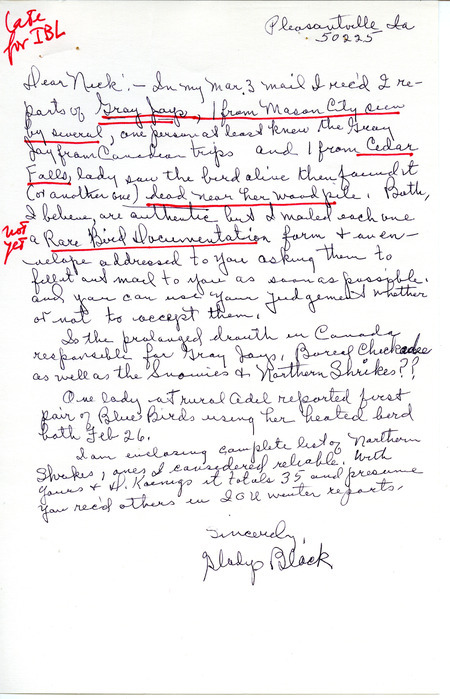 Late
for IBL
Pleasantville Ia
50225
Dear Nick: - In my Mar. 3 mail I rec'd 2 re-
ports of Gray Jays, 1 from Mason City seen
by several, one person at least knew the Gray
Jay from Canadian trips and 1 from Cedar
Falls, lady saw the bird alive then found it
(or another one) dead near her wood pile. Both,
I believe, are authentic but I mailed each one
not
yet
a Rare Bird Documentation form & an en-
velope addressed to you asking them to
fill out and mail to you as soon as possible.
and you can use your judgement whether
or not to accept them.
Is the prolonged drouth in Canada
responsible for Gray Jays, Boreal Chickadee
as well as the Snowies & Northern Shrikes??
One lady at rural Adel reported first
pair of Blue Birds using her heated bird
bath Feb 26.
I am enclosing complete list of Northern
Shrikes, ones I considered reliable. With
yours & H. Koenigs it totals 35 and presume
you rec'd others in winter reports.
Sincerely,
Gladys Black